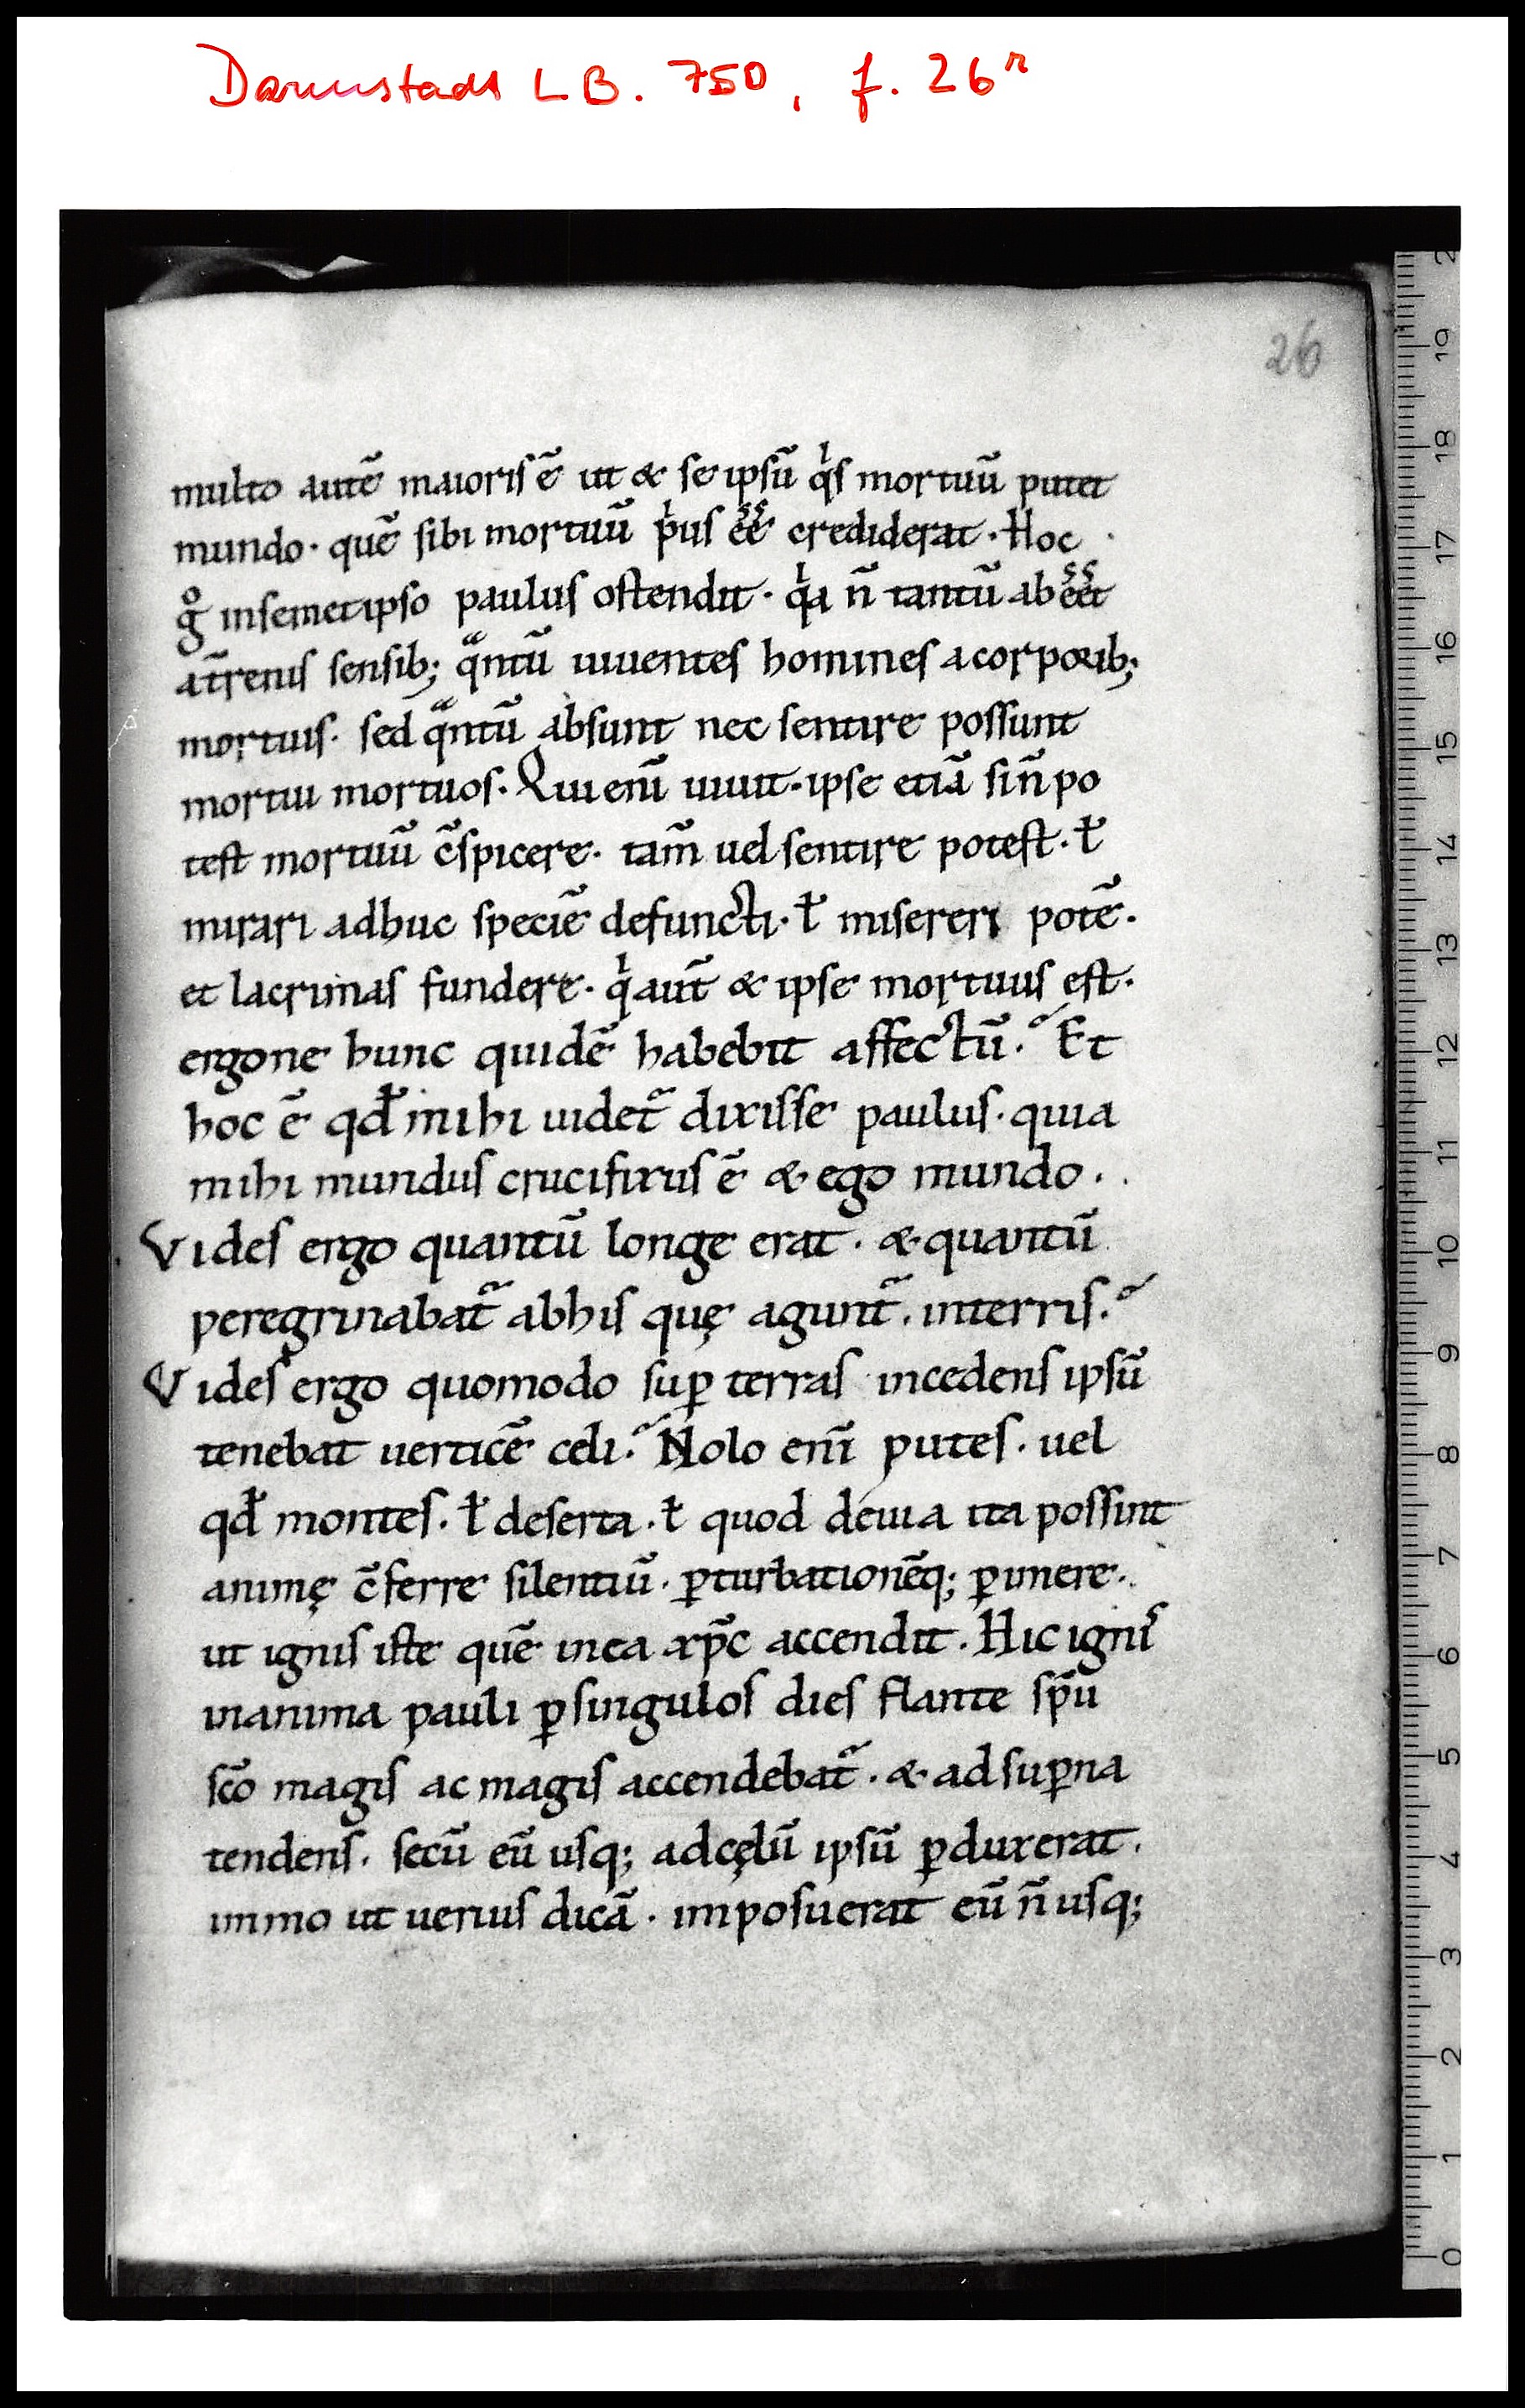 Darmstadt LB. 750, f. 26r
26
multo autē maioris ē ut & se ipsū qͥs mortuū putet
mundo · quē sibi mortuū pͥus ee͛ crediderat · Hoc
gͦ insemetipso paulus ostendit · qͥa n̄ tantū ab ee͛t
at̄renis sensib; qͣntū uiuentes homines a corporib;
mortuis · sed qͣntū absunt nec sentire possunt
mortui mortuos · Qui eni̅ uiuit · ipse etiā si n̄ po
test mortuū c̄spicere · tam̄ uel sentire potest · ł
mirari adhuc speciē defuncti · ł misereri potē ·
et lacrimas fundere · qͥ aut̄ & ipse mortuus est ·
ergone hunc quidē habebit affectū ? Et
hoc ē qd̄ mihi uidet᷑ dixisse paulus · quia
mihi mundus crucifixus ē & ego mundo ·
Vides ergo quantū longe erat · & quantū
peregrinabat᷑ abhis quę agunt᷑ · interris ?
Vides ergo quomodo suꝑ terras incedens ipsū
tenebat uerticē celi ? Nolo eni̅ putes · uel
qd̄ montes · ł deserta · ł quod deuia ita possint
animę c̄ferre silentiū · ꝑturbationēq; ꝑimere ·
ut ignis iste quē inea xp̄c accendit · Hic ignis
inanima pauli ꝑ singulos dies flante sp̄u
sc̄o magis ac magis accendebat᷑ · & ad suꝑna
tendens · secū eū usq; adcęlū ipsū ꝑduxerat ·
immo ut uerius dicā · imposuerat eū n̄ usq;
0
1
2
3
4
5
6
7
8
9
10
11
12
13
14
15
16
17
18
19
2